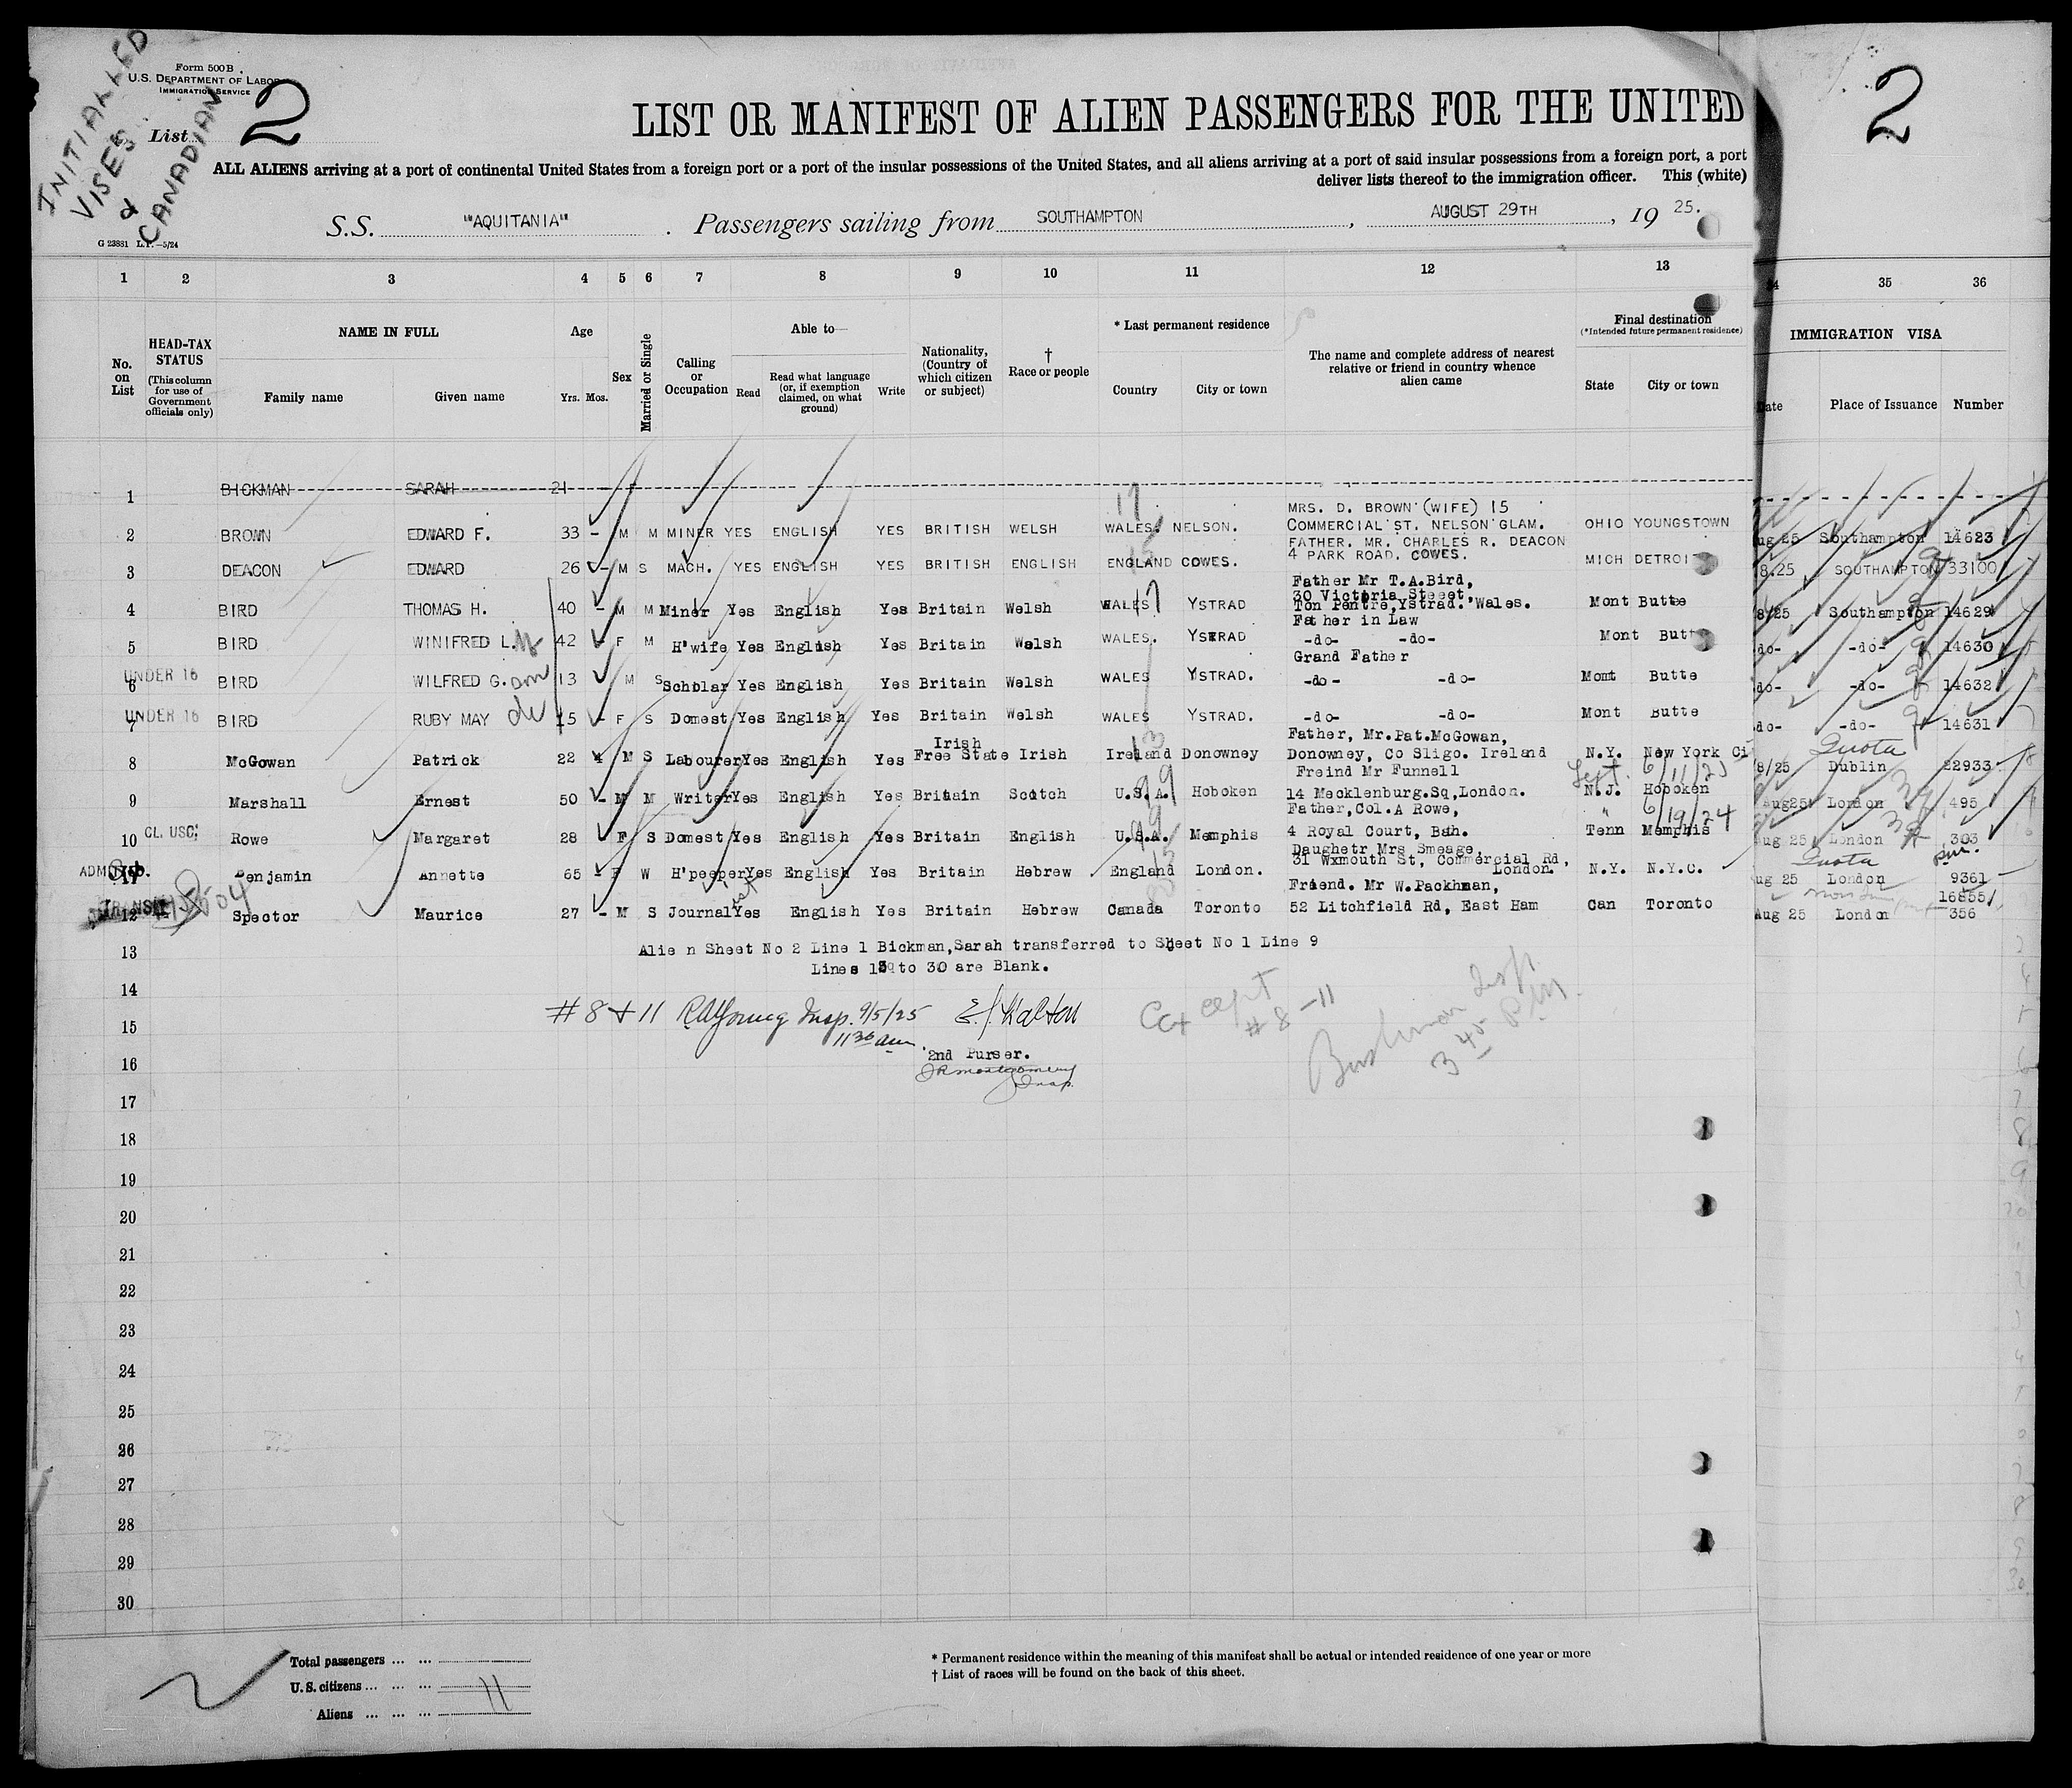 INITIALLED
VISES
&
CANADIAN
Form 500 B
U.S. DEPARTMENT OF LABOR
IMMIGRATION SERVICE
List 2
2
LIST OR MANIFEST OF ALIEN PASSENGERS FOR THE UNITED
ALL ALIENS arriving at a port of continental United States from a foreign port or a port of the insular possessions of the United States, and all aliens arriving at a port of said insular possessions from a foreign port, a port
deliver lists thereof to the immigration officer. This (white)
S.S. "AQUITANIA" . Passengers sailing from SOUTHAMPTON , AUGUST 29TH , 19 25.
G 23881 L.P.—5/24
1 2 3 4 5 6 7 8 9 10 11 12 13 34 35 36
No. on List
HEAD-TAX STATUS
(This column for use of Government officials only)
NAME IN FULL
Family name Given name
Age
Yrs. Mos.
Sex
Married or Single
Calling or Occupation
Able to—
Read
Read what language (or, if exemption claimed, on what ground)
Write
Nationality, (Country of which citizen or subject)
† Race or people
* Last permanent residence
Country City or town
The name and complete address of nearest relative or friend in country whence alien came
Final destination
(*Intended future permanent residence)
State City or town
IMMIGRATION VISA
Date Place of Issuance Number
1 BICKMAN SARAH 21 F
MRS. D. BROWN (WIFE) 15
2 BROWN EDWARD F. 33 - M M MINER YES ENGLISH YES BRITISH WELSH WALES. NELSON. COMMERCIAL ST. NELSON GLAM. OHIO YOUNGSTOWN ug 25 Southampton 14623
FATHER. MR. CHARLES R. DEACON
3 DEACON EDWARD 26 - M S MACH. YES ENGLISH YES BRITISH ENGLISH ENGLAND COWES. 4 PARK ROAD. COWES. MICH DETROIT 8.25 SOUTHAMPTON 33100
Father Mr T.A.Bird,
30 Victoria Steeet,
4 BIRD THOMAS H. 40 - M M Miner Yes English Yes Britain Welsh WALES YSTRAD Ton Pentre,Ystrad. Wales. Mont Butte 8/25 Southampton 14629
Father in Law
5 BIRD WINIFRED L. 42 F M H'wife Yes English Yes Britain Welsh WALES. YSTRAD -do- -do- Mont Butte -do- -do- 14630
Grand Father
UNDER 16
6 BIRD WILFRED G. 13 M S Scholar Yes English Yes Britain Welsh WALES YSTRAD. -do- -do- Mont Butte -do- -do- 14632
UNDER 16
7 BIRD RUBY MAY 15 - F S Domest Yes English Yes Britain Welsh WALES YSTRAD. -do- -do- Mont Butte -do- -do- 14631
Father, Mr.Pat.McGowan,
8 McGowan Patrick 22 M S Labourer Yes English Yes Irish Free State Irish Ireland Donowney Donowney, Co Sligo. Ireland N.Y. New York Ci 8/25 Quota Dublin 22933
Freind Mr Funnell
9 Marshall Ernest 50 - M M Writer Yes English Yes Britain Scotch U.S.A. Hoboken 14 Mecklenburg.Sq,London. N.J. Hoboken Aug25 London 495
Father,Col.A Rowe,
10 CL. USC. Rowe Margaret 28 F S Domest Yes English Yes Britain English U.S.A. Memphis 4 Royal Court, Bah. Tenn Memphis 6/19/24 ug 25 London 303
Daughetr Mrs Smeage,
31 Wxmouth St, Commercial Rd,
11 Benjamin Annette 65 F W H'peeper Yes English Yes Britain Hebrew England London. London. N.Y. N.Y.C. ug 25 Quota London 9361
Friend. Mr W.Packhman,
16855
12 TRANSIT Spector Maurice 27 - M S Journal Yes English Yes Britain Hebrew Canada Toronto 52 Litchfield Rd, East Ham Can Toronto Aug 25 London 356
13 Alie n Sheet No 2 Line 1 Bickman,Sarah transferred to Sheet No 1 Line 9
Lines 13 to 30 are Blank.
14
#8 + 11 Insp. 9/5/25
1130 am
Except
#8-11
Insp
345 P.M.
15
2nd Purser.
JR Montgomery
Insp.
16
17
18
19
20
21
22
23
24
25
26
27
28
29
30
Total passengers ... ...
U.S. citizens ... ... ...
Aliens ... ... ... 11
* Permanent residence within the meaning of this manifest shall be actual or intended residence of one year or more
† List of races will be found on the back of this sheet.